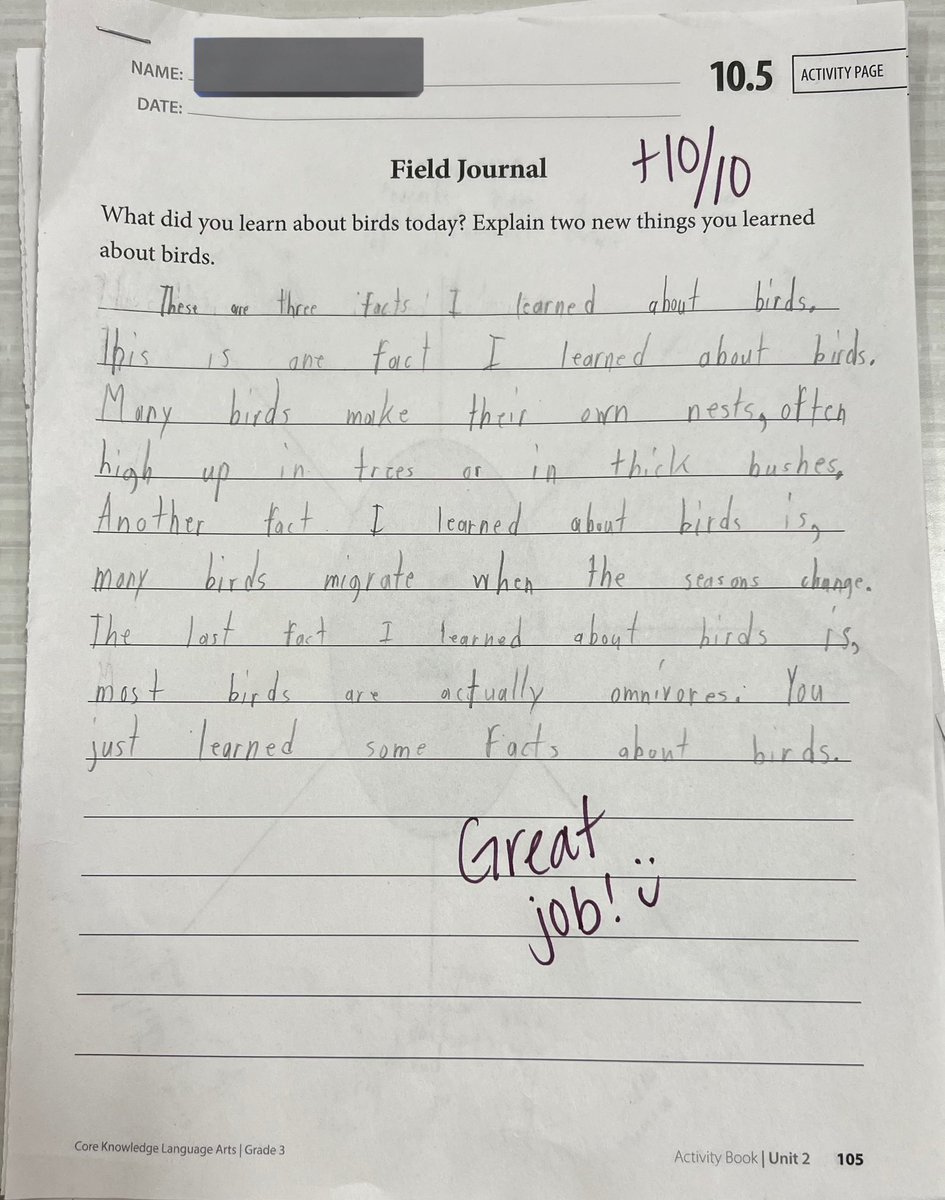 NAME:
10.5 ACTIVITY PAGE
DATE:
Field Journal
+10/10
What did you learn about birds today? Explain two new things you learned
about birds.
These are three facts I learned about birds.
This is one fact I learned about birds.
Many birds make their own nests, often
high up in trees or in thick bushes.
Another fact I learned about birds is,
many birds migrate when the seasons change.
The last fact I learned about birds is,
most birds are actually omnivores. You
just learned some facts about birds.
Great
job! :)
Core Knowledge Language Arts | Grade 3
Activity Book | Unit 2 105